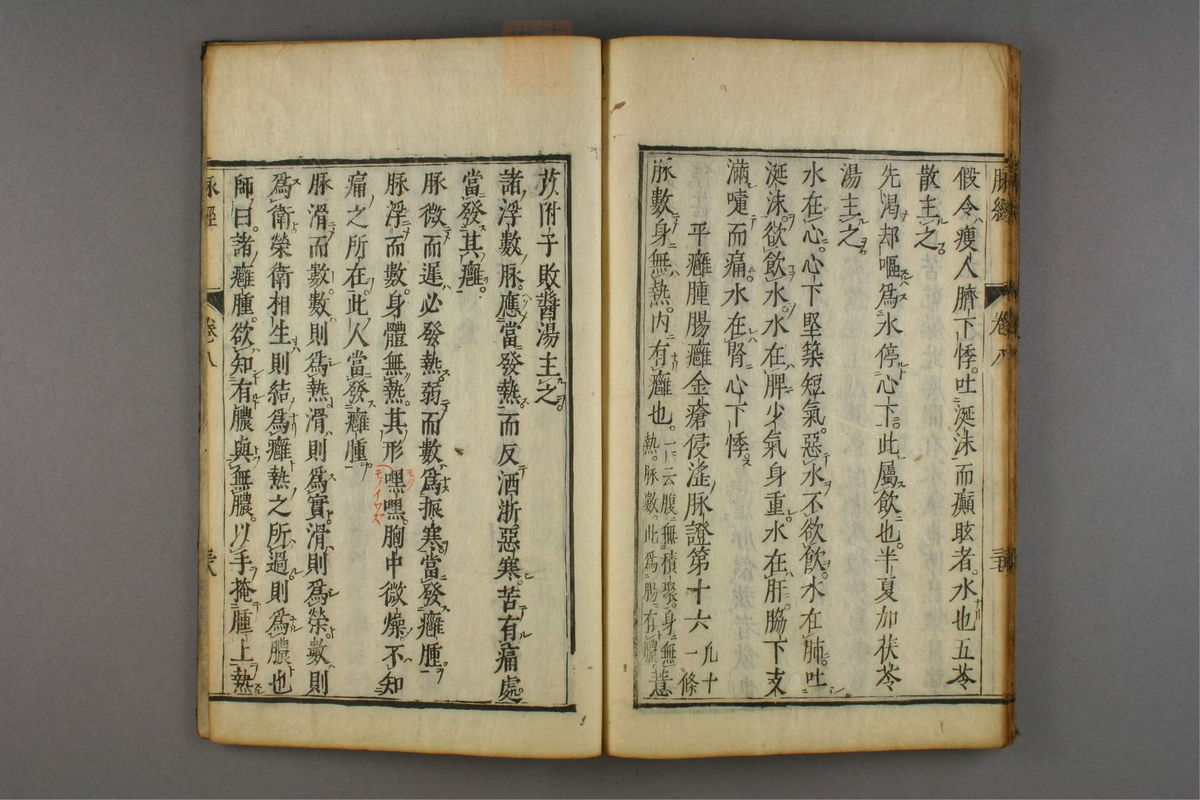 假令瘦人臍下悸吐涎沫而癲眩者水也五苓
散主之
先渴却嘔爲水停心下此屬飲也半夏加茯苓
湯主之
水在心心下堅築短氣惡水不欲飲水在肺吐
涎沫欲飲水水在脾少氣身重水在肝脇下支
滿嚏而痛水在腎心下悸
平癰腫腸癰金瘡侵淫脉證第十六凡十一條
脉數身無熱内有癰也一云腹無積聚身無熱脉數此爲腸有膿薏
脉經 卷八
苡附子敗醬湯主之
諸浮數脉應當發熱而反洒淅惡寒苦有痛處
當發其癰
脉微而遲必發熱弱而數爲振寒當發癰腫
脉浮而數身體無熱其形嘿嘿胸中微燥不知
痛之所在此人當發癰腫
脉滑而數數則爲熱滑則爲實滑則爲榮數則
爲衛榮衛相生則結爲癰熱之所過則爲膿也
師曰諸癰腫欲知有膿與無膿以手掩腫上熱
脉經 卷八